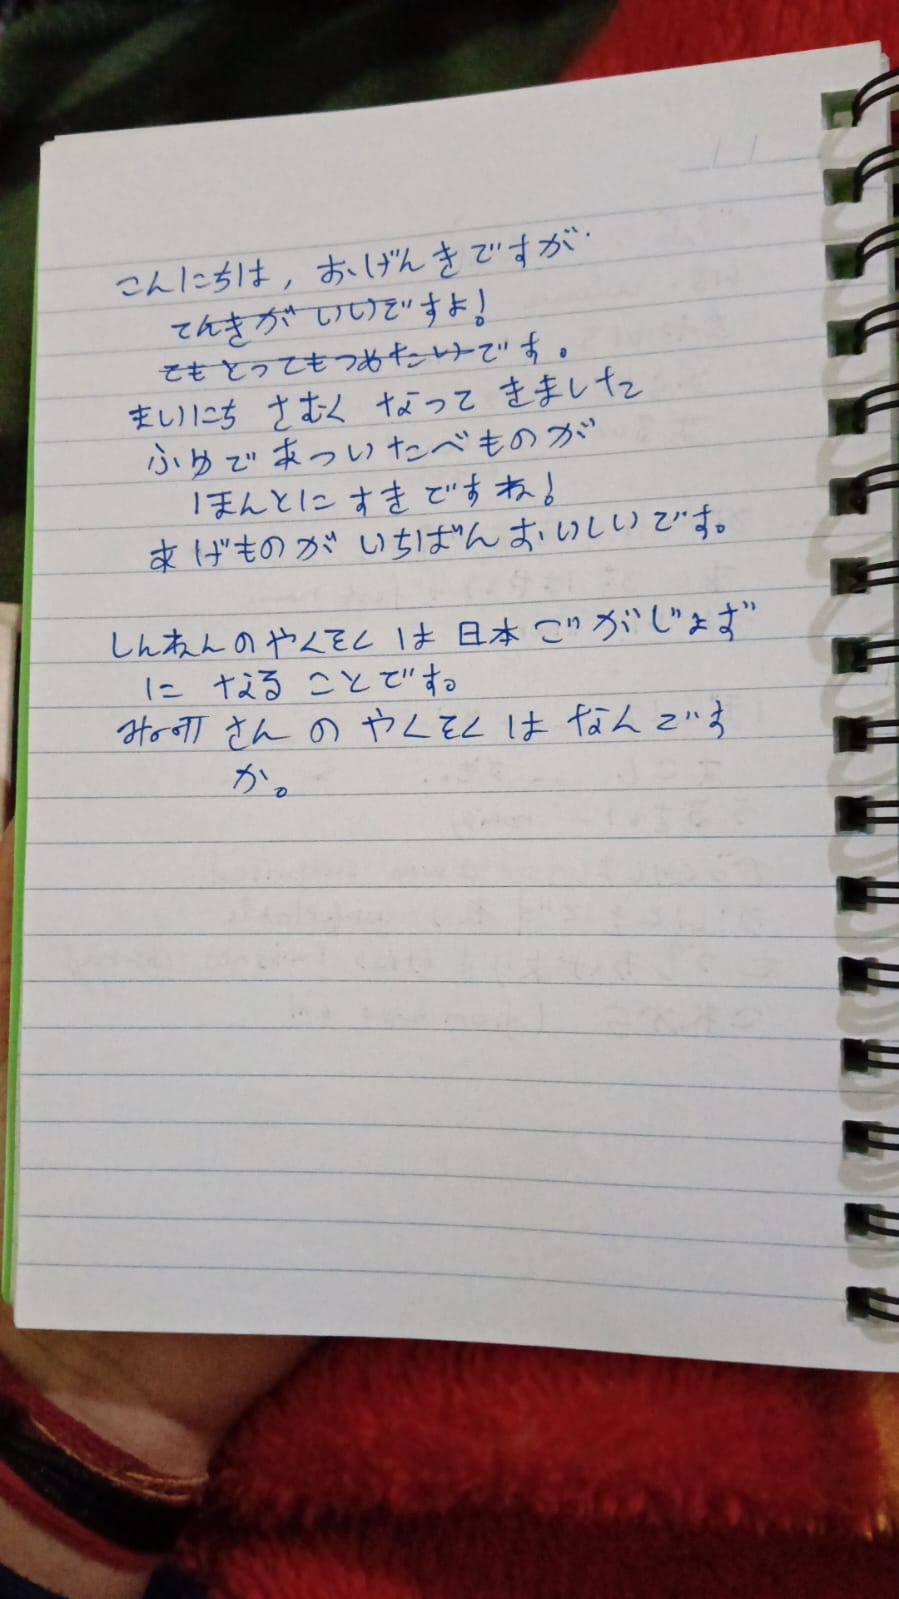 こんにちは, おげんきですが.
てんきが いいですよ!
でも とってもつめたいです。
まいにち さむく なって きました
ふゆで あつい たべものが
ほんとに すきですね!
あげものが いちばん おいしいです。
しんねんの やくそく は 日本ごがじょず
に なる ことです。
さん の やくそく は なんです
か。